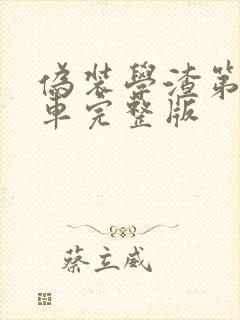 偽裝學渣第
車完整版
蔡立威